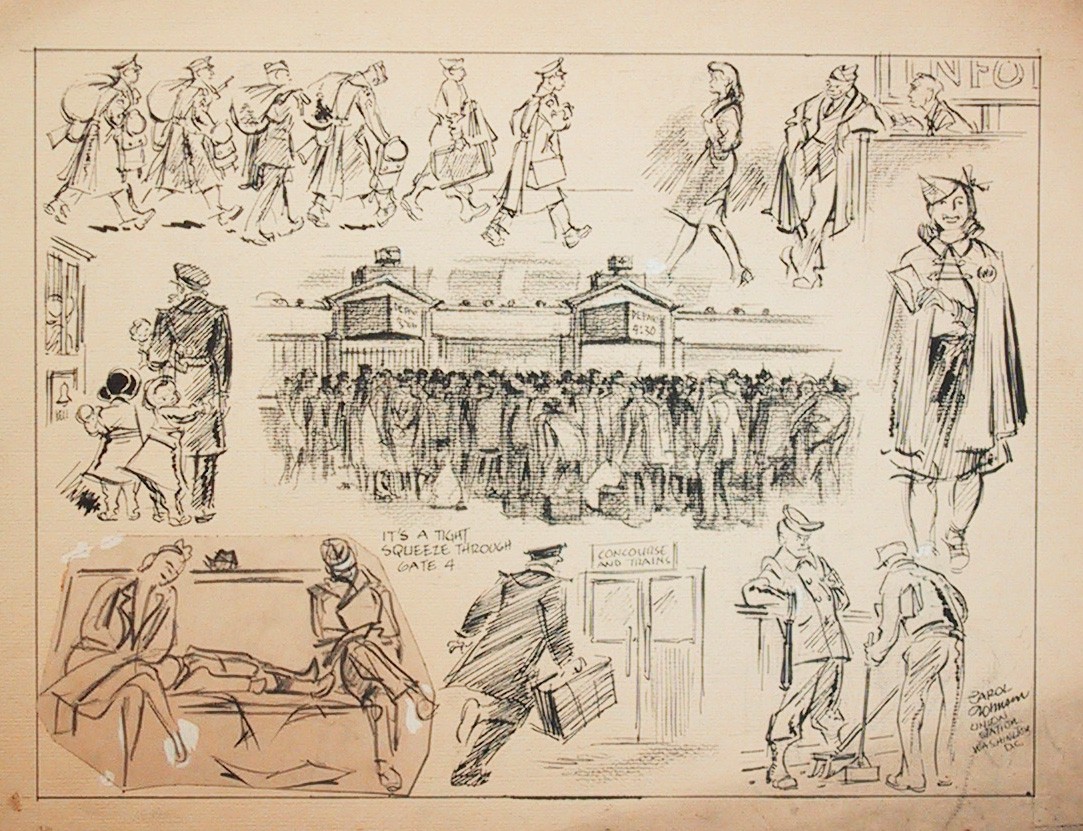 INFO
DEPART
4:30
IT'S A TIGHT
SQUEEZE THROUGH
GATE 4
CONCOURSE
AND TRAINS
CAROL
JOHNSON
UNION
STATION
WASHINGTON
D.C.